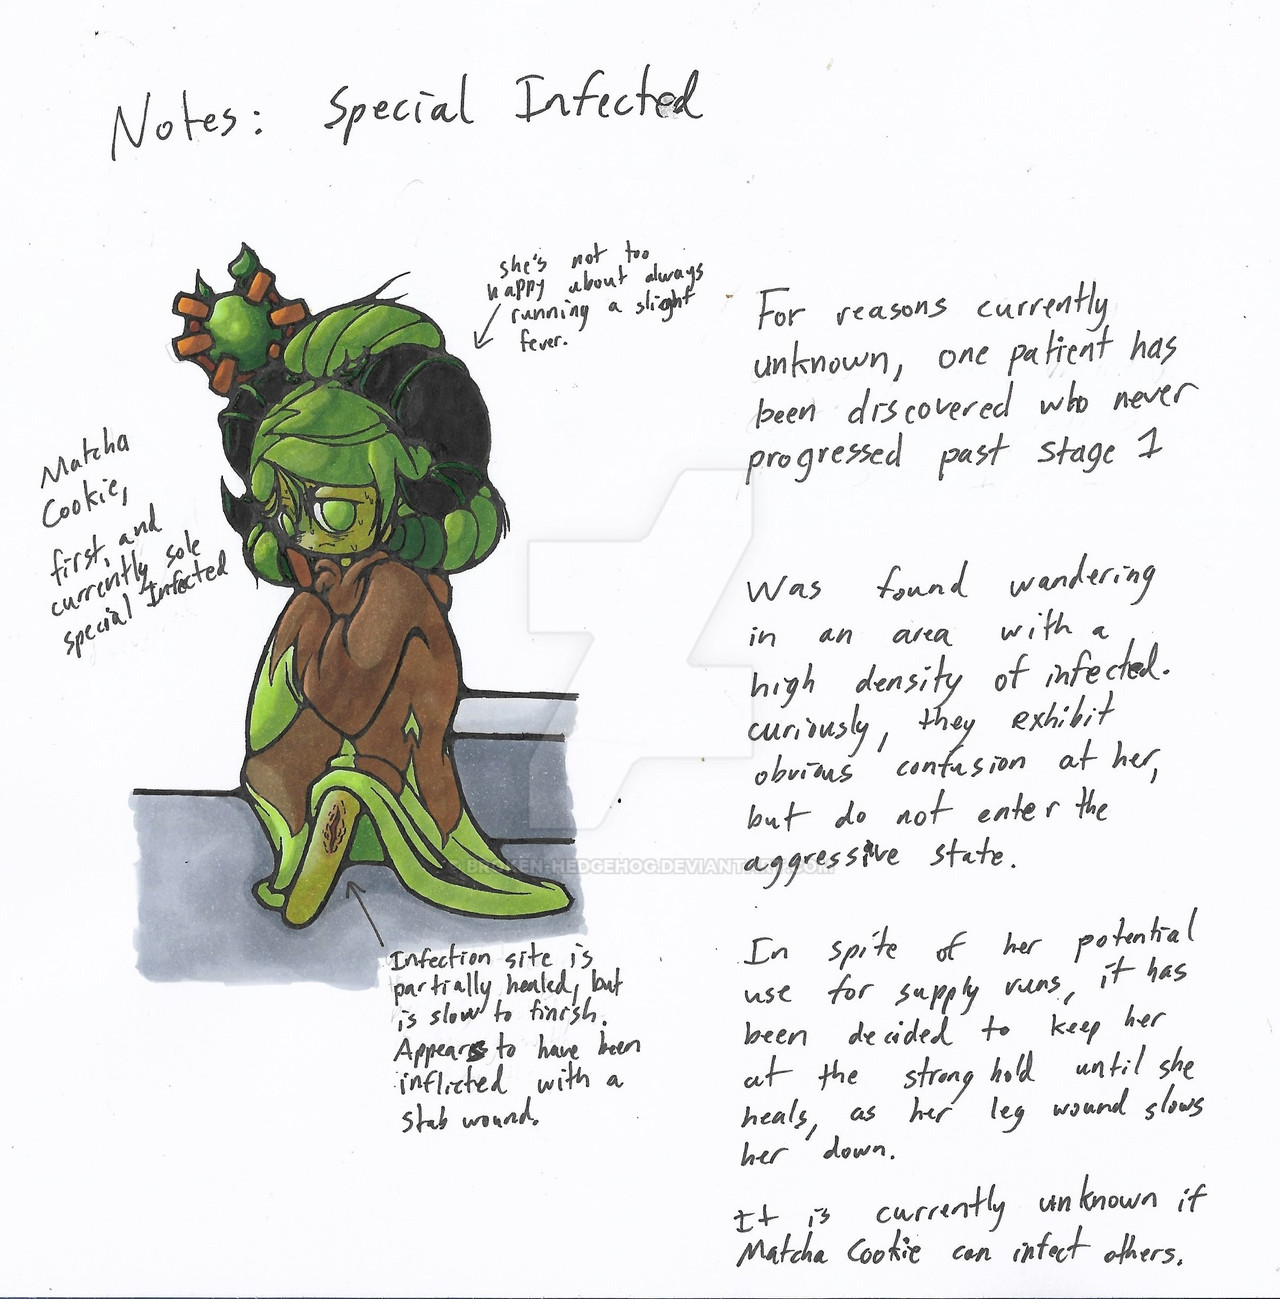 Notes: Special Infected
she's not too
happy about always
running a slight
fever.
Matcha
Cookie,
first, and
currently sole
special Infected
Infection site is
partially healed, but
is slow to finish.
Appears to have been
inflicted with a
stab wound.
For reasons currently
unknown, one patient has
been discovered who never
progressed past stage 1
Was found wandering
in an area with a
high density of infected.
curiously, they exhibit
obvious confusion at her,
but do not enter the
aggressive state.
In spite of her potential
use for supply runs, it has
been decided to keep her
at the strong hold until she
heals, as her leg wound slows
her down.
It is currently unknown if
Matcha Cookie can infect others.
BROKEN-HEDGEHOG.DEVIANTART.COM